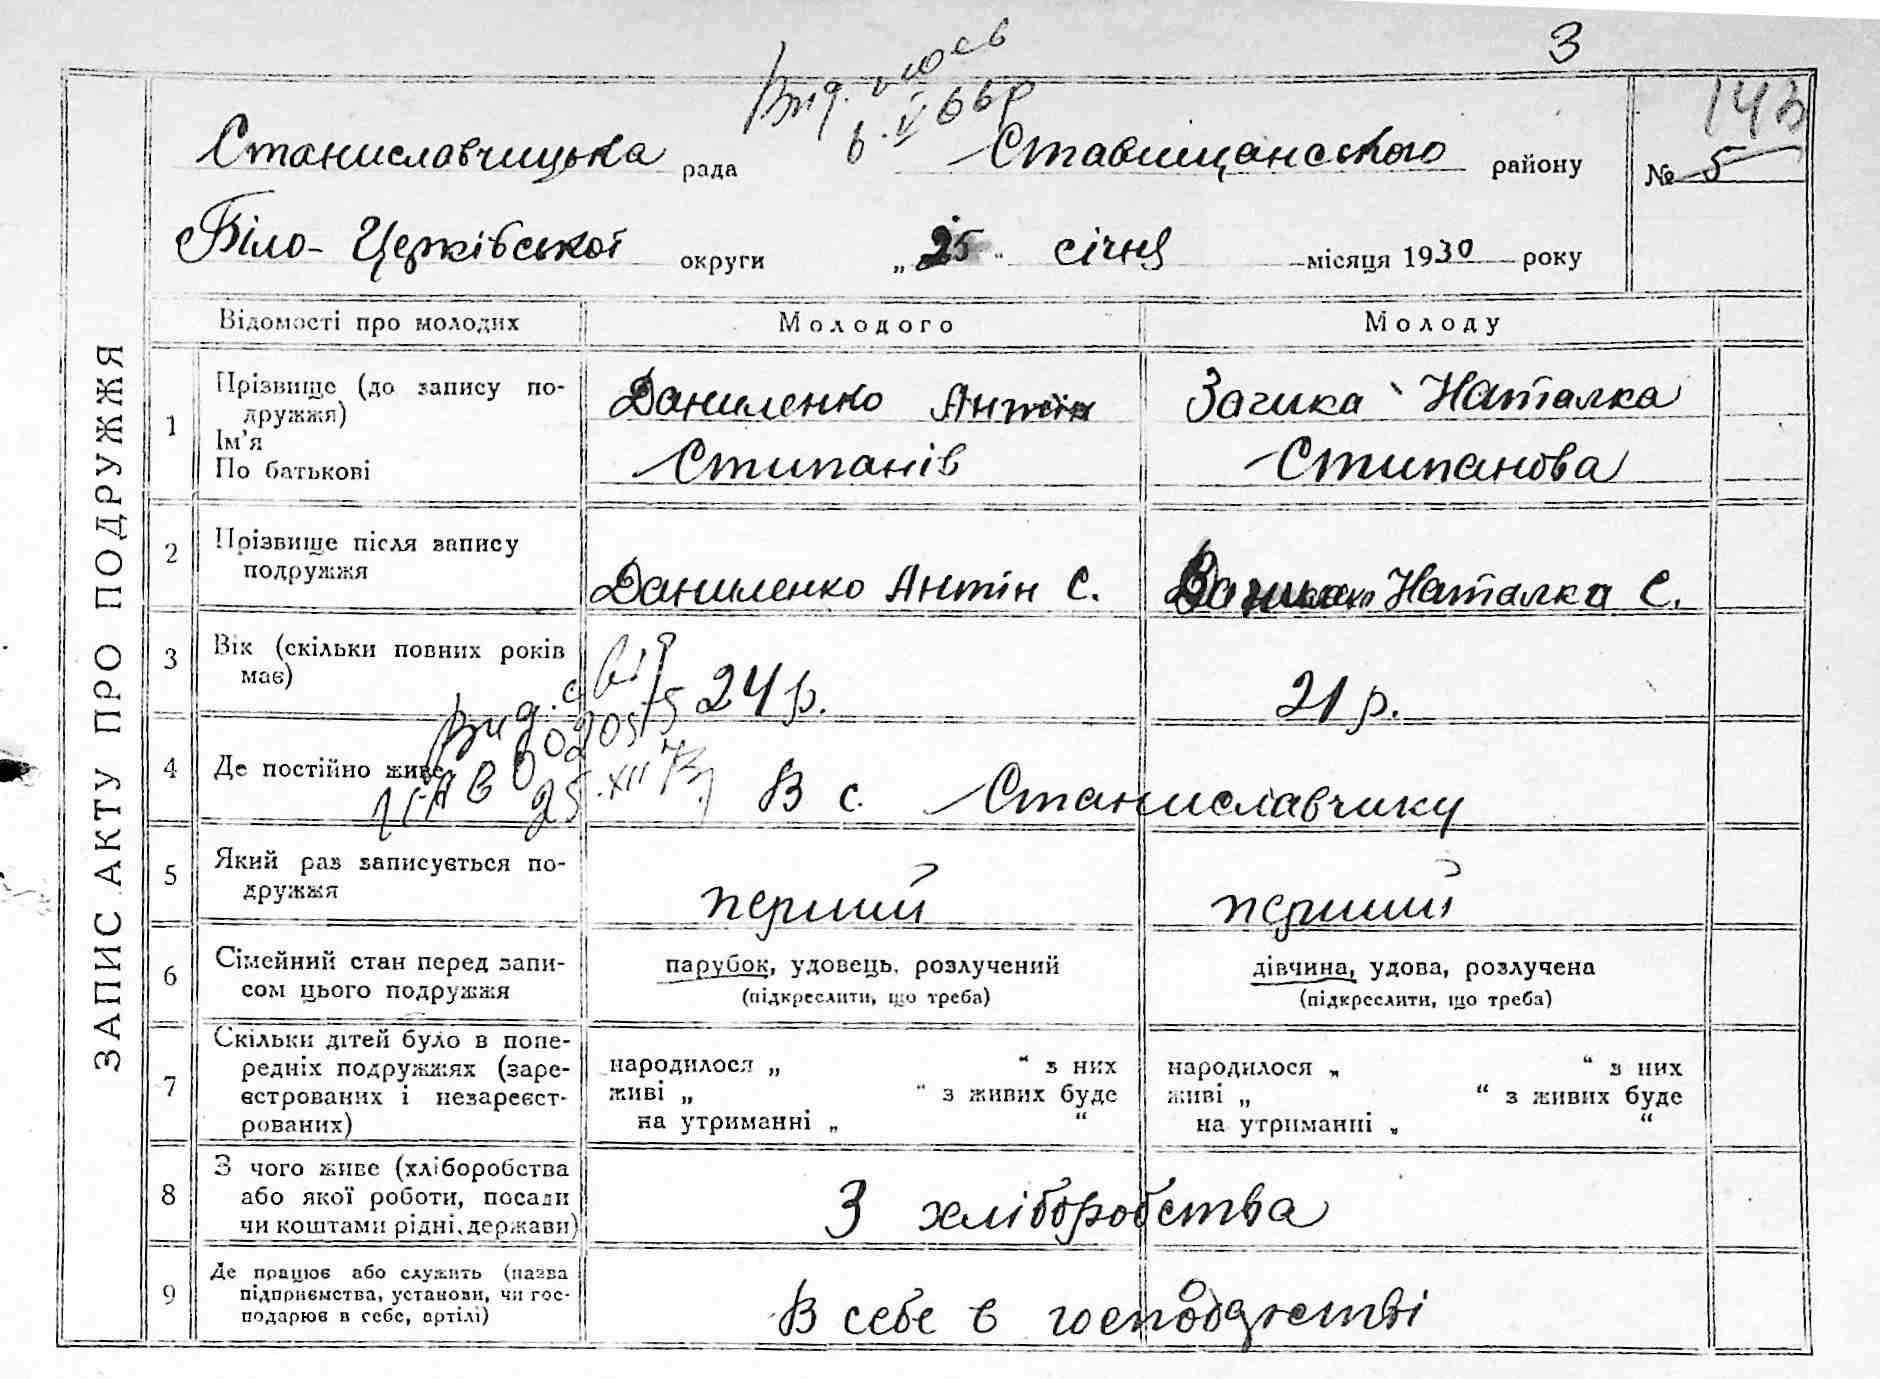 3
Вид. 
6.V 66р
143
Станиславчицька рада Ставищанського району № 5
Біло-Церківської округи „25“ січня місяця 1930 року
ЗАПИС АКТУ ПРО ПОДРУЖЖЯ
Відомості про молодих Молодого Молоду
1 Прізвище (до запису по-
дружжя)
Ім'я
По батькові
Даниленко Антін
Стипанів
Загика Наталка
Стипанова
2 Прізвище після запису
подружжя
Даниленко Антін С.
Наталка С.
3 Вік (скільки повних років
має)
24 р.
21 р.
Вид.
25.XII
4 Де постійно живе
В с. Станиславчику
5 Який раз записується по-
дружжя
перший
перший
6 Сімейний стан перед запи-
сом цього подружжя
парубок, удовець, розлучений
(підкреслити, що треба)
дівчина, удова, розлучена
(підкреслити, що треба)
7 Скільки дітей було в попе-
редніх подружжях (заре-
єстрованих і незареєст-
рованих)
народилося „ “ з них
живі „ “ з живих буде
на утриманні „ “
народилося „ “ з них
живі „ “ з живих буде
на утриманні „ “
8 З чого живе (хліборобства
або якої роботи, посади
чи коштами рідні, держави)
З хліборобства
9 Де працює або служить (назва
підприємства, установи, чи гос-
подарює в себе, артілі)
В себе в господарстві